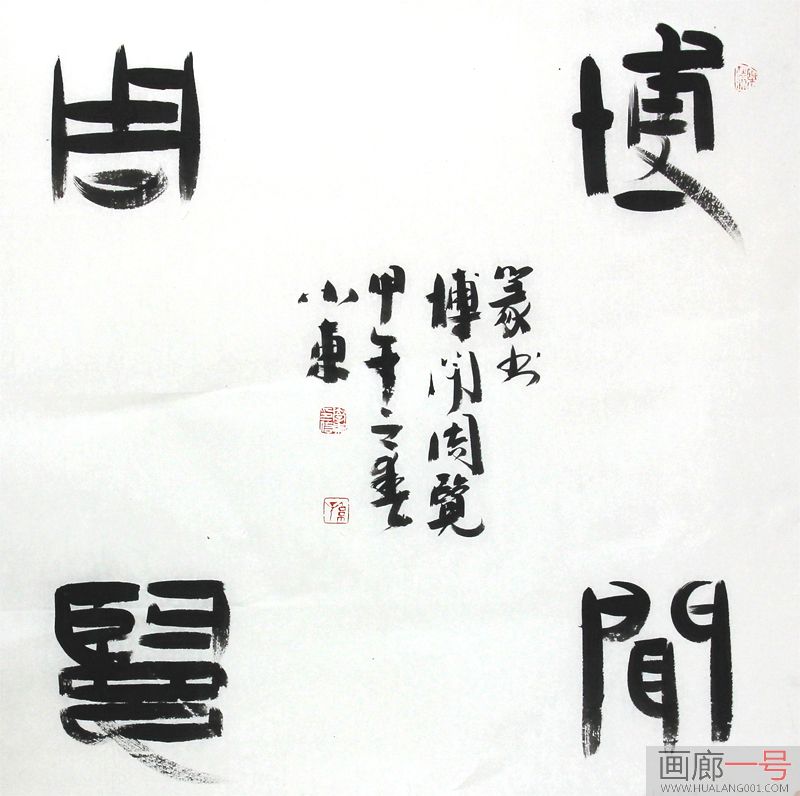 博聞
周覽
篆书
博闻周覽
甲午之春
小東
画廊一号
WWW.HUALANG001.COM